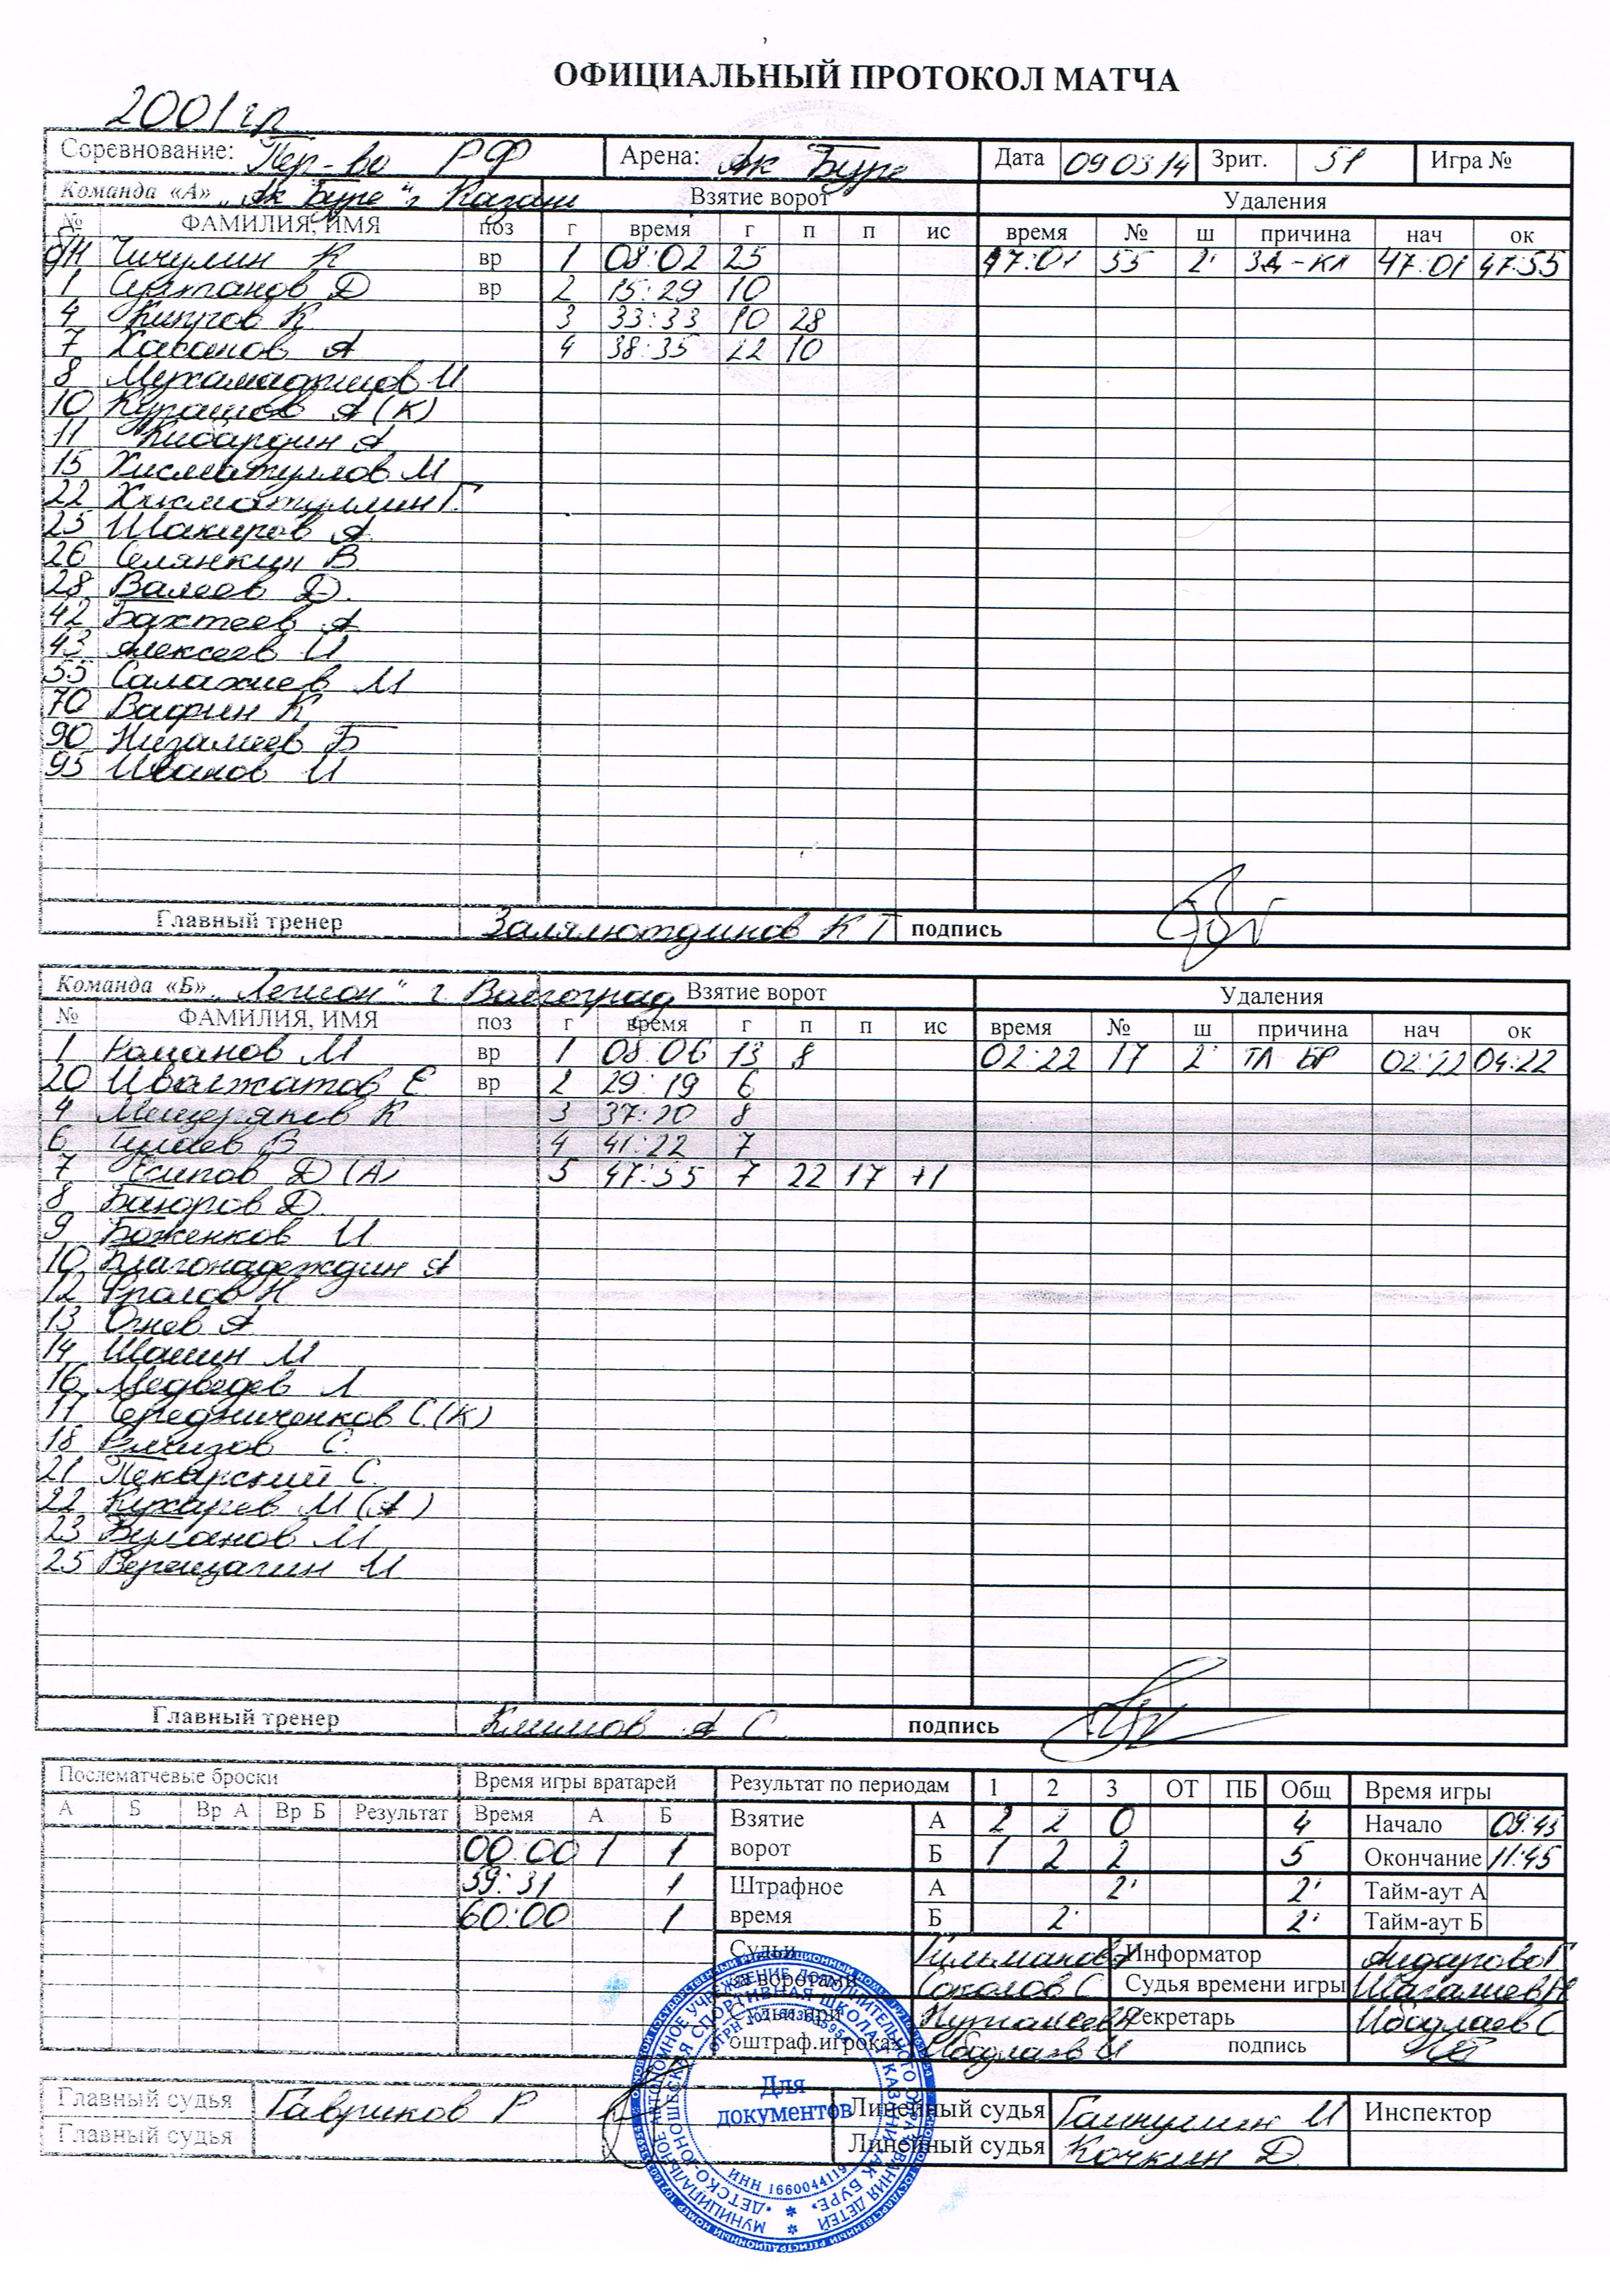 ОФИЦИАЛЬНЫЙ ПРОТОКОЛ МАТЧА
2001 гр
Соревнование: Пер-во РФ Арена: Ак Буре Дата 09 03.14 Зрит. 51 Игра №
Команда «А» „Ак Буре" г Казань Взятие ворот Удаления
№ ФАМИЛИЯ, ИМЯ поз г время г п п ис время № ш причина нач ок
б/н Чичулин К вр 1 08:02 25 47:01 55 2' ЗД-КЛ 47:01 47:55
1 Султанов Д вр 2 15:29 10
4 Кипров К 3 33:33 10 28
7 Хасанов А 4 38:35 22 10
8 И
10 Курашов А (К)
11 Кибардин А
15 Хисматуллов М
22 Хисматуллин Г.
25 Шакиров А
26 Селянкин В
28 Валеев Д.
42 Бахтеев А
43 Алексеев И
55 Салахиев М
70 Вафин К
90 Низамиев Б
95 Иванов И
Главный тренер Залялютдинов К Г подпись
Команда «Б» „Легион" г Волгоград Взятие ворот Удаления
№ ФАМИЛИЯ, ИМЯ поз г время г п п ис время № ш причина нач ок
1 Романов М вр 1 08:06 13 8 02:22 17 2' ТЛ БР 02:22 04:22
20 Е. вр 2 29:19 6
4 Мещеряков К 3 37:20 8
6 В 4 41:22 7
7 Есипов Д (А) 5 47:55 7 22 17 +1
8 Д.
9 Боженков И
10 Благонадеждин А
12 Фролов Н
13 Огнев А
14 Шашин М
16 Медведев Л.
17 Средниченков С. (К)
18 Ремизов С.
21 Пекарский С.
22 Кухарев М (А)
23 Буланов М
25 Верещагин И
Главный тренер Климов А С. подпись
Послематчевые броски Время игры вратарей Результат по периодам 1 2 3 ОТ ПБ Общ Время игры
А Б Вр А Вр Б Результат Время А Б Взятие А 2 2 0 4 Начало 09:45
00:00 1 1 ворот Б 1 2 2 5 Окончание 11:45
59:31 1 Штрафное А 2' 2' Тайм-аут А
60:00 1 время Б 2' 2' Тайм-аут Б
Судьи Информатор
за воротами Соколов С Судья времени игры
Судьи при Секретарь
оштраф.игроках подпись
Главный судья Гавриков Р Линейный судья И Инспектор
Главный судья Линейный судья Кочкин Д
Для
документов
ИНН 1660044119